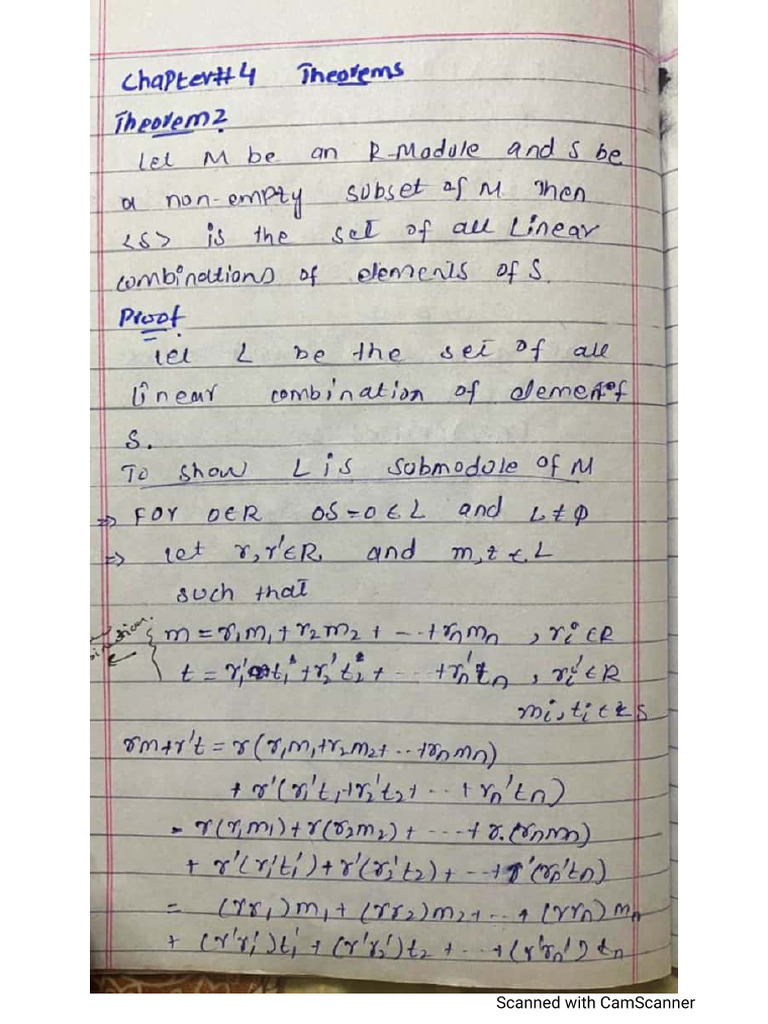 Chapter#4 Theorems
Theorem2.
Let M be an R-Module and S be
a non-empty subset of M Then
<S> is the set of all Linear
combinations of elements of S.
Proof
let L be the set of all
linear combination of element of
S.
To show L is submodule of M
⇒ For 0∈R 0S=0∈L and L≠φ
⇒ let r,r'∈R and m,t∈L
such that
m=r₁m₁+r₂m₂+---+rₙmₙ , rᵢ∈R
t=r₁'t₁+r₂'t₂+---+rₙ'tₙ , rᵢ'∈R
mᵢ,tᵢ∈S
rm+r't=r(r₁m₁+r₂m₂+--+rₙmₙ)
+r'(r₁'t₁+r₂'t₂+---+rₙ'tₙ)
=r(r₁m₁)+r(r₂m₂)+---+r.(rₙmₙ)
+r'(r₁'t₁')+r'(r₂'t₂)+--+r'(rₙ'tₙ)
=(rr₁)m₁+(rr₂)m₂+--+(rrₙ)mₙ
+(r'r₁')t₁'+(r'r₂')t₂+--+(r'rₙ')tₙ
Scanned with CamScanner